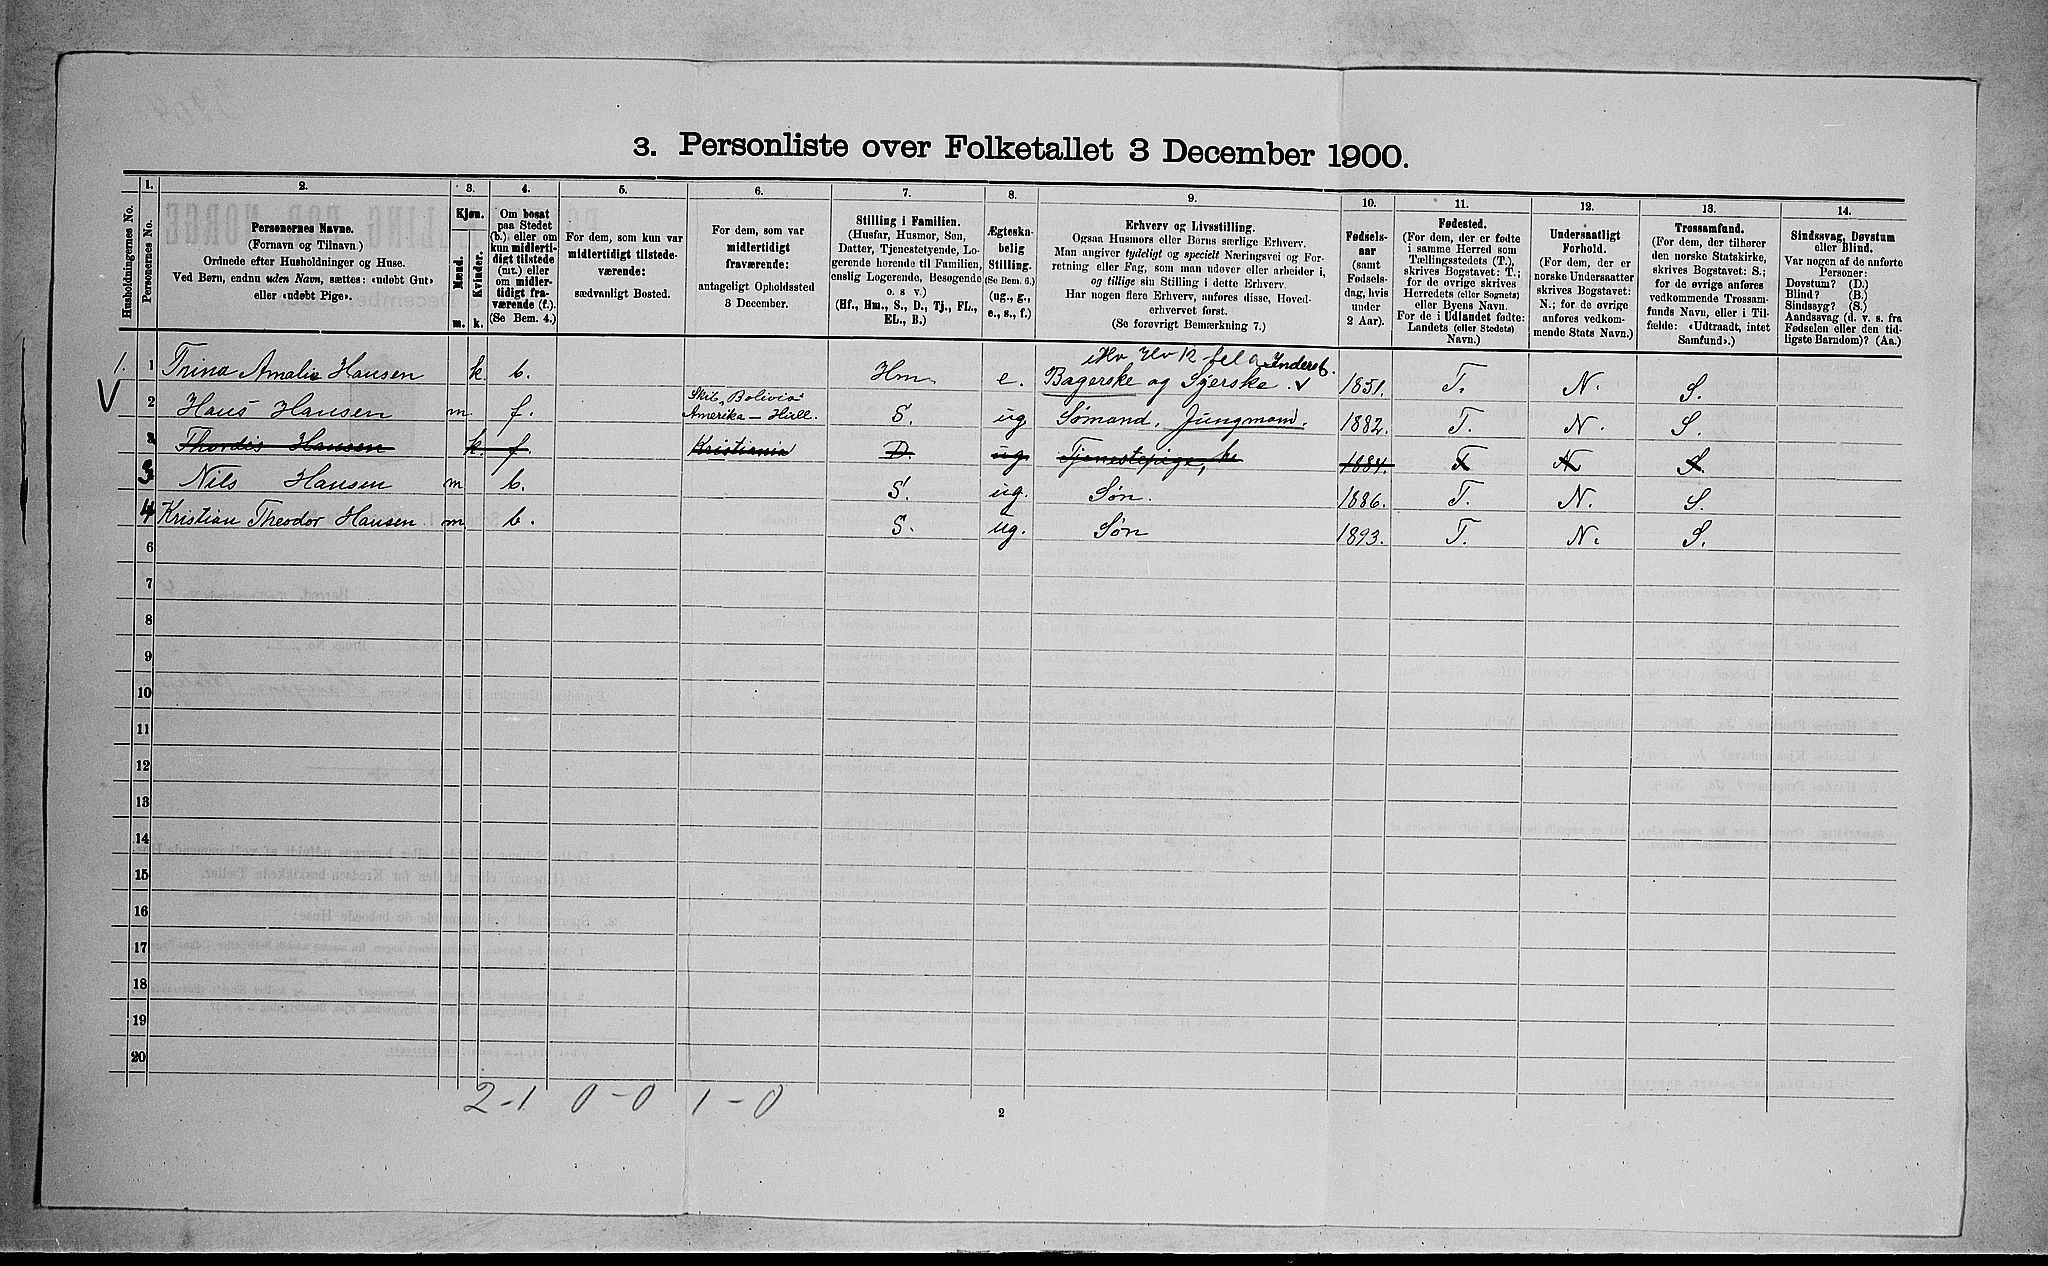 3. Personliste over Folketallet 3 December 1900.
Husholdningernes No.
1.
Personernes No.
2.
Personernes Navne.
(Fornavn og Tilnavn.)
Ordnede efter Husholdninger og Huse.
Ved Børn, endnu uden Navn, sættes: «udøbt Gut»
eller «udøbt Pige».
3.
Kjøn.
Mænd.
Kvinder.
m.
k.
4.
Om bosat
paa Stedet
(b.) eller om
kun midlerti-
digt tilstede
(mt.) eller
om midler-
tidigt fra-
værende (f.).
(Se Bem. 4.)
5.
For dem, som kun var
midlertidigt tilstede-
værende:
sædvanligt Bosted.
6.
For dem, som var
midlertidigt
fraværende:
antageligt Opholdssted
3 December.
7.
Stilling i Familien.
(Husfar, Husmor, Søn,
Datter, Tjenestetyende, Lo-
gerende hørende til Familien,
enslig Logerende, Besøgende
o. s. v.)
(Hf., Hm., S., D., Tj., FL.,
EL., B.)
8.
Ægteska-
belig
Stilling.
(Se Bem. 6.)
(ug., g.,
e., s., f.)
9.
Erhverv og Livsstilling.
Ogsaa Husmors eller Børns særlige Erhverv.
Man angiver tydeligt og specielt Næringsvei og For-
retning eller Fag, som man udøver eller arbeider i,
og tillige sin Stilling i dette Erhverv.
Har nogen flere Erhverv, anføres disse, Hoved-
erhvervet først.
(Se forøvrigt Bemærkning 7.)
10.
Fødsels-
aar
(samt
Fødsels-
dag, hvis
under
2 Aar).
11.
Fødested.
(For dem, der er fødte
i samme Herred som
Tællingsstedets (T.),
skrives Bogstavet: T.;
for de øvrige skrives
Herredets (eller Sognets)
eller Byens Navn.
For de i Udlandet fødte:
Landets (eller Stedets)
Navn.)
12.
Undersaatligt
Forhold.
(For dem, der er
norske Undersaatter
skrives Bogstavet:
N.; for de øvrige
anføres vedkom-
mende Stats Navn.)
13.
Trossamfund.
(For dem, der tilhører
den norske Statskirke,
skrives Bogstavet: S.;
for de øvrige anføres
vedkommende Trossam-
funds Navn, eller i Til-
fælde: «Udtraadt, intet
Samfund».)
14.
Sindssvag, Døvstum
eller Blind.
Var nogen af de anførte
Personer:
Døvstum? (D.)
Blind? (B.)
Sindssyg? (S.)
Aandssvag (d. v. s. fra
Fødselen eller den tid-
ligste Barndom)? (Aa.)
1. 1 Trina Amalie Hansen k. b. Hm. e. Bagerske og Syerske. v 1851. T. N. S.
V 2 Hans Hansen m f. Skib "Bolivia" Amerika - Hvll. S. ug Sømand. Jungmand. 1882. T. N. S.
Thordis Hansen k. f. Kristiania D ug Tjenestepige, 1884. T N S
3 Nils Hansen m b. S. ug. Søn. 1886. T. N. S.
4 Kristian Theodor Hansen m. b. S. ug. Søn 1893. T. N. S.
6
7
8
9
10
11
12
13
14
15
16
17
18
19
20
2-1 0-0 1-0
2